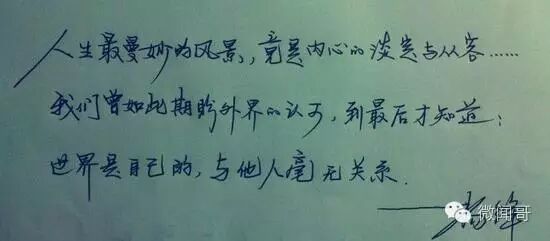 人生最曼妙的风景，竟是内心的淡定与从容……
我们曾如此期盼外界的认可，到最后才知道：
世界是自己的，与他人毫无关系.
微闻哥